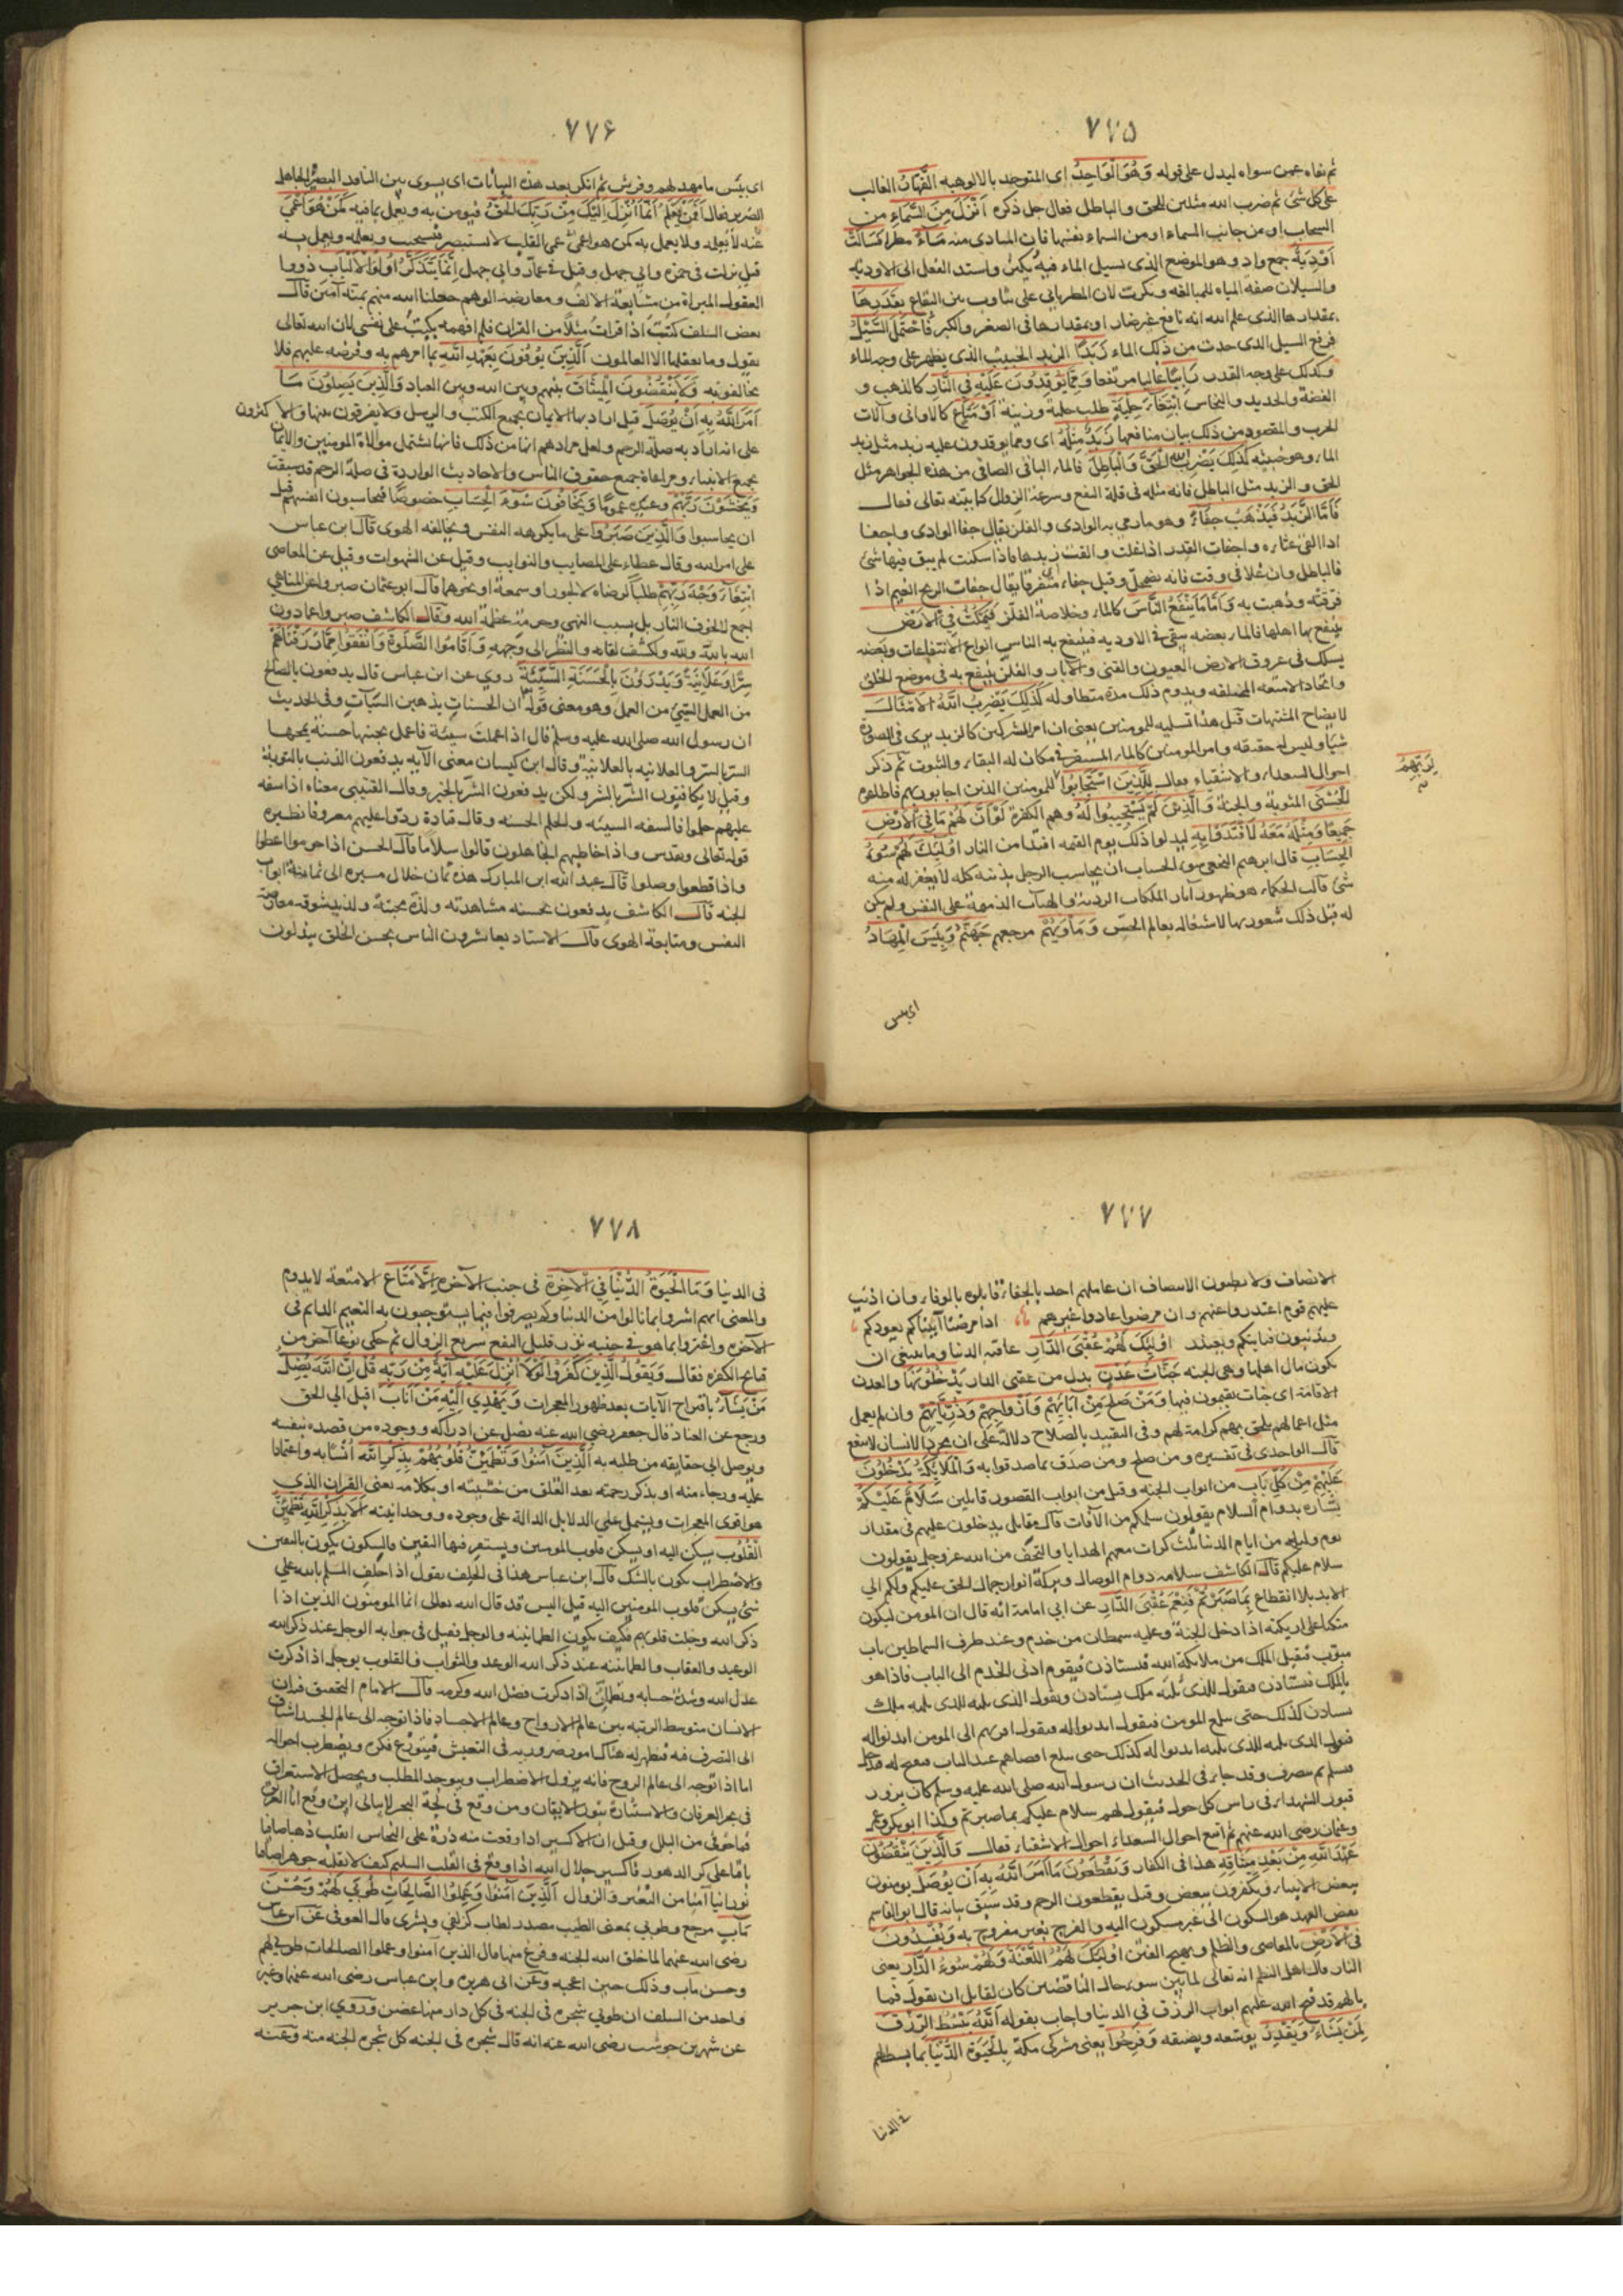 ٧٧٥
ثم نفاه عمن سواه ليدل على قوله وَهُوَ الْوَاحِدُ اى المتوحد بالالوهيه الْقَهَّارُ الغالب
على كل شئ ثم ضرب الله مثلين للحق والباطل فقال جل ذكره أَنْزَلَ مِنَ السَّمَاءِ من
السحاب او من جانب السماء او من السماء نفسها فان المبادى منه مَاءً مطرا فَسَالَتْ
أَوْدِيَةٌ جمع واد وهو الموضع الذى يسيل الماء فيه واسند الفعل الى الاوديه
والسيلان صفة المياه للمبالغه ونكرت لان المطر ياتى على تناوب بين البقاع بِقَدَرِهَا
بمقدارها الذى علم الله انه نافع غير ضار او بمقدارها فى الصغر والكبر فَاحْتَمَلَ السَّيْلُ
فرفع السيل الذى حدث من ذلك الماء زَبَدًا الزبد الخبيث الذى يظهر على وجه الماء
وكذلك على وجه القدر رَابِيًا عاليا مرتفعا وَمِمَّا يُوقِدُونَ عَلَيْهِ فِي النَّارِ كالذهب و
الفضة والحديد والنحاس ابْتِغَاءَ حِلْيَةٍ طلب حلية وزينة أَوْ مَتَاعٍ كالاوانى وآلات
الحرب والمقصود من ذلك بيان منافعها زَبَدٌ مِثْلُهُ اى ومما يوقدون عليه زبد مثل زبد
الماء وهو خبيثه كَذَلِكَ يَضْرِبُ اللَّهُ الْحَقَّ وَالْبَاطِلَ فالماء الباقى الصافى من هذه الجواهر مثل
الحق والزبد مثل الباطل فانه مثله فى قلة النفع وسرعة الزوال كما بينه تعالى فقال
فَأَمَّا الزَّبَدُ فَيَذْهَبُ جُفَاءً وهو ما رمى به الوادى والفلز يقال جفا الوادى واجفا
اذا القى غثاءه واجفات القدر اذا غلت والقت زبدها فاذا سكنت لم يبق فيها شئ
فالباطل وان علا فى وقت فانه يضمحل وقيل جفاء اى متفرقا يقال جفات الريح الغيم اذا
فرقته وذهبت به وَأَمَّا مَا يَنْفَعُ النَّاسَ كالماء وخلاصة الفلز فَيَمْكُثُ فِي الْأَرْضِ
ينتفع بها اهلها فالماء بعضه يبقى فى الاوديه فينتفع به الناس انواع الانتفاعات وبعضه
يسلك فى عروق الارض العيون والقنى والآبار والفلز ينتفع به فى موضع الخلق
واتخاذ الامتعه المختلفه ويدوم ذلك مدة متطاوله كَذَلِكَ يَضْرِبُ اللَّهُ الْأَمْثَالَ
لايضاح المشتبهات قيل هذا تسليه للمومنين يعنى ان امر المشركين كالزبد يرى فى الصورة
شيا وليس له حقيقه وامر المومنين كالماء المستقر فى مكان له البقاء والثبوت ثم ذكر
احوال السعداء والاشقياء فقال لِلَّذِينَ اسْتَجَابُوا للمومنين الذين اجابوا
لِرَبِّهِمُ
الْحُسْنَى المثوبة والجنة وَالَّذِينَ لَمْ يَسْتَجِيبُوا لَهُ وهم الكفرة لَوْ أَنَّ لَهُمْ مَا فِي الْأَرْضِ
جَمِيعًا وَمِثْلَهُ مَعَهُ لَافْتَدَوْا بِهِ ليدلوا ذلك يوم القيمه افتداء من النار أُولَئِكَ لَهُمْ سُوءُ
الْحِسَابِ قال ابرهيم النخعى سوء الحساب ان يحاسب الرجل بذنبه كله لا يغفر له منه
شئ قالت الحكماء هو ظهور آثار الملكات الردية والهيآت الذميمة على النفس ولم يكن
له قبل ذلك شعور بها لاشتغاله بعالم الحس وَمَأْوَيهُمْ مرجعهم جَهَنَّمُ وَبِئْسَ الْمِهَادُ
اى بئس
٧٧٦
اى بئس ما مهد لهم وفرش ثم انكر بعد هذه البيانات اى يسوى بين الناقد البصير والجاهل
الضرير فقال أَفَمَنْ يَعْلَمُ أَنَّمَا أُنْزِلَ إِلَيْكَ مِنْ رَبِّكَ الْحَقُّ فيومن به ويعمل بما فيه كَمَنْ هُوَ أَعْمَى
عنه لا يعلمه ولا يعمل به كمن هو اعمى عمى القلب لا يستبصر فيستجيب ويعلمه ويعمل به
قيل نزلت فى حمزة وابى جهل وقيل فى عمار وابى جهل إِنَّمَا يَتَذَكَّرُ أُولُوا الْأَلْبَابِ ذووا
العقول المبراة من مشايعة الالف ومعارضه الوهم جعلنا الله منهم بمنه آمين قال
بعض السلف كنت اذا قرات مثلا من القران فلم افهمه بكيت على نفسى لان الله تعالى
يقول وما يعقلها الا العالمون الَّذِينَ يُوفُونَ بِعَهْدِ اللَّهِ بما امرهم به وفرضه عليهم فلا
يخالفونه وَلَا يَنْقُضُونَ الْمِيثَاقَ بينهم وبين الله وبين العباد وَالَّذِينَ يَصِلُونَ مَا
أَمَرَ اللَّهُ بِهِ أَنْ يُوصَلَ قيل اراد بها الايمان بجميع الكتب والرسل ولا يفرقون بينها والاكثرون
على انه اراد به صلة الرحم ولعل مرادهم انها من ذلك فانها تشتمل موالاة المومنين والايمان
بجميع الانبياء ومراعاة جميع حقوق الناس والاحاديث الواردة فى صلة الرحم قد سبقت
وَيَخْشَوْنَ رَبَّهُمْ وعيده عموما وَيَخَافُونَ سُوءَ الْحِسَابِ خصوصا فيحاسبون انفسهم قبل
ان يحاسبوا وَالَّذِينَ صَبَرُوا على ما يكرهه النفس ويخالفه الهوى قال ابن عباس
على امر الله وقال عطاء على المصايب والنوايب وقيل عن الشهوات وقيل عن المعاصى
ابْتِغَاءَ وَجْهِ رَبِّهِمْ طلبا لرضاه لا لجور او سمعة او نحوهما قال ابو عثمان صبروا عن المناهى
اجمع لا لخوف النار بل بسبب النهى وحرمة عظمة الله وقال الكاشف صبروا عما دون
الله بالله ولله ولكشف لقائه والنظر الى وجهه وَأَقَامُوا الصَّلَوةَ وَأَنْفَقُوا مِمَّا رَزَقْنَاهُمْ
سِرًّا وَعَلَانِيَةً وَيَدْرَؤُنَ بِالْحَسَنَةِ السَّيِّئَةَ روي عن ابن عباس قال يدفعون بالصالح
من العمل السيئ من العمل وهو معنى قوله ان الحسنات يذهبن السيات وفى الحديث
ان رسول الله صلى الله عليه وسلم قال اذا عملت سيئة فاعمل بجنبها حسنة يمحها
السر بالسر والعلانيه بالعلانية وقال ابن كيسان معنى الآيه يدفعون الذنب بالتوبة
وقيل لا يكافئون الشر بالشر ولكن يدفعون الشر بالخير وقال القتيبى معناه اذا سفه
عليهم حلموا فالسفه السيئه والحلم الحسنه وقال قتادة ردوا عليهم معروفا نظيره
قوله تعالى وتقدس واذا خاطبهم الجاهلون قالوا سلاما قال الحسن اذا حرموا اعطوا
واذا قطعوا وصلوا قال عبد الله ابن المبارك هذه ثمان خلال مسيره الى ثمانية ابواب
الجنه قال الكاشف يدفعون بحسنه مشاهدته ولذة محبته ولذيذ شوقه معارضة
النفس ومتابعة الهوى قال الاستاد يعاشرون الناس بحسن الخلق يبذلون
٧٧٧
الانصاف ولا يطلبون الانصاف ان عاملهم احد بالجفاء قابلوه بالوفاء وان اذنب
عليهم قوم اعتذروا عنهم وان مرضوا عادوا غيرهم اذا مرضنا اتيناكم نعودكم
وتذنبون فناتيكم ونعتذر أُولَئِكَ لَهُمْ عُقْبَى الدَّارِ عاقبة الدنيا وما ينبغى ان
يكون مال اهلها وهى الجنه جَنَّاتُ عَدْنٍ بدل من عقبى الدار يَدْخُلُونَهَا والعدن
الاقامة اى جنات يقيمون فيها وَمَنْ صَلَحَ مِنْ آبَائِهِمْ وَأَزْوَاجِهِمْ وَذُرِّيَّاتِهِمْ وان لم يعمل
مثل اعمالهم يلحق بهم كرامة لهم وفى التقييد بالصلاح دلالة على ان مجرد الانسان لا ينفع
قال الواحدى فى تفسيره ومن صلح ومن صدق بما صدقوا به وَالْمَلَائِكَةُ يَدْخُلُونَ
عَلَيْهِمْ مِنْ كُلِّ بَابٍ من ابواب الجنه وقيل من ابواب القصور قايلين سَلَامٌ عَلَيْكُمْ
بشارة بدوام السلام يقولون سلمكم من الآفات قال مقاتل يدخلون عليهم فى مقدار
يوم وليله من ايام الدنيا ثلث كرات معهم الهدايا والتحف من الله عز وجل يقولون
سلام عليكم قال الكاشف سلامه دوام الوصال وبركة انوار جمال الحق عليكم ولكم الى
الابد بلا انقطاع بِمَا صَبَرْتُمْ فَنِعْمَ عُقْبَى الدَّارِ عن ابى امامة انه قال ان المومن ليكون
متكئا على اريكته اذا دخل الجنة وعليه سمطان من خدم وعند طرف السماطين باب
مبوب فيقبل الملك من ملائكة الله فيستاذن فيقوم ادنى الخدم الى الباب فاذا هو
بالملك يستاذن فيقول للذى يليه ملك يستاذن ويقول الذى يليه للذى يليه ملك
يستاذن كذلك حتى يبلغ المومن فيقول ايذنوا له فيقول اقربهم الى المومن ايذنوا له
فيقول الذى يليه للذى يليه ايذنوا له كذلك حتى يبلغ اقصاهم عند الباب فيفتح له فيدخل
فيسلم ثم ينصرف وقد جاء فى الحديث ان رسول الله صلى الله عليه وسلم كان يزور
قبور الشهداء فى راس كل حول فيقول لهم سلام عليكم بما صبرتم وكذا ابو بكر وعمر
وعثمان رضى الله عنهم ثم اتبع احوال السعداء احوال الاشقياء فقال وَالَّذِينَ يَنْقُضُونَ
عَهْدَ اللَّهِ مِنْ بَعْدِ مِيثَاقِهِ هذا فى الكفار وَيَقْطَعُونَ مَا أَمَرَ اللَّهُ بِهِ أَنْ يُوصَلَ يومنون
ببعض الانبياء ويكفرون ببعض وقيل يقطعون الرحم وقد سبق بيانه قال ابو القاسم
نقض العهد هو السكون الى غير مسكون اليه والفرح بغير مفروح به وَيُفْسِدُونَ
فِي الْأَرْضِ بالمعاصى والظلم وتهييج الفتن أُولَئِكَ لَهُمُ اللَّعْنَةُ وَلَهُمْ سُوءُ الدَّارِ يعنى
النار قال اهل النظم انه تعالى لما بين سوء حال الناقضين كان لقايل ان يقول فما
بالهم قد فتح الله عليهم ابواب الرزق فى الدنيا واجاب بقوله اللَّهُ يَبْسُطُ الرِّزْقَ
لِمَنْ يَشَاءُ وَيَقْدِرُ يوسعه ويضيقه وَفَرِحُوا يعنى مشركى مكة بِالْحَيَوةِ الدُّنْيَا بما بسط لهم
فى الدنيا
٧٧٨
فى الدنيا وَمَا الْحَيَوةُ الدُّنْيَا فِي الْآخِرَةِ فى جنب الآخره إِلَّا مَتَاعٌ الا متعة لا يدوم
والمعنى انهم اشروا بما نالوا من الدنيا ولم يصرفوا فيما يستوجبون به النعيم الدايم فى
الآخره واغتروا بما هو فى جنبه نزر قليل النفع سريع الزوال ثم حكى نوعا آخر من
قبايح الكفره فقال وَيَقُولُ الَّذِينَ كَفَرُوا لَوْلَا أُنْزِلَ عَلَيْهِ آيَةٌ مِنْ رَبِّهِ قُلْ إِنَّ اللَّهَ يُضِلُّ
مَنْ يَشَاءُ باقتراح الآيات بعد ظهور المعجزات وَيَهْدِي إِلَيْهِ مَنْ أَنَابَ اقبل الى الحق
ورجع عن العناد قال جعفر رضى الله عنه يضل عن ادراكه ووجوده من قصده بنفسه
ويوصل الى حقايقه من طلبه به الَّذِينَ آمَنُوا وَتَطْمَئِنُّ قُلُوبُهُمْ بِذِكْرِ اللَّهِ انسا به واعتمادا
عليه ورجاء منه او بذكر رحمته بعد القلق من خشيته او بكلامه يعنى القران الذى
هو اقوى المعجزات ويشتمل على الدلايل الدالة على وجوده ووحدانيته أَلَا بِذِكْرِ اللَّهِ تَطْمَئِنُّ
الْقُلُوبُ يسكن اليه او يسكن قلوب المومنين ويستقر فيها اليقين والسكون يكون باليقين
والاضطراب يكون بالشك قال ابن عباس هذا فى الحلف يقول اذا حلف المسلم بالله على
شئ يسكن قلوب المومنين اليه قيل اليس قد قال الله تعالى انما المومنون الذين اذا
ذكر الله وجلت قلوبهم فكيف يكون الطمانينه والوجل فقيل فى جوابه الوجل عند ذكر الله
الوعيد والعقاب والطمانينه عند ذكر الله الوعد والثواب فالقلوب يوجل اذا ذكرت
عدل الله وشدة حسابه وتطمئن اذا ذكرت فضل الله وكرمه قال الامام التحقيق فيه ان
الانسان متوسط الرتبه بين عالم الارواح وعالم الاجساد فاذا توجه الى عالم الجسد اشتاق
الى التصرف فيه فيظهر له هناك امور ضروريه فى التعيش فيتوزع فكره ويضطرب احواله
اما اذا توجه الى عالم الروح فانه يزول الاضطراب ويتوحد المطلب ويحصل الاستغراق
فى بحر العرفان والاستنارة بنور الايقان ومن وقع فى لجة البحر لا يبالى اين وقع انا الغريق
فما خوفى من البلل وقيل ان الاكسير اذا وقعت منه ذرة على النحاس انقلب ذهبا صافيا
باقيا على كر الدهور فاكسير جلال الله اذا وقع فى القلب السليم كيف لا يقلبه جوهرا صافيا
نورانيا آمنا من التغير والزوال الَّذِينَ آمَنُوا وَعَمِلُوا الصَّالِحَاتِ طُوبَى لَهُمْ وَحُسْنُ
مَآبٍ مرجع وطوبى بمعنى الطيب مصدر لطاب كزلفى وبشرى قال العوفى عن ابن عباس
رضى الله عنهما لما خلق الله الجنه وفرغ منها قال الذين آمنوا وعملوا الصالحات طوبى لهم
وحسن مآب وذلك حين اعجبه وعن ابى هريره وابن عباس رضى الله عنهما وغير
واحد من السلف ان طوبى شجره فى الجنه فى كل دار منها غصن وروي ابن جرير
عن شهر بن حوشب رضى الله عنه انه قال شجره فى الجنه كل شجره الجنه منه وعنه